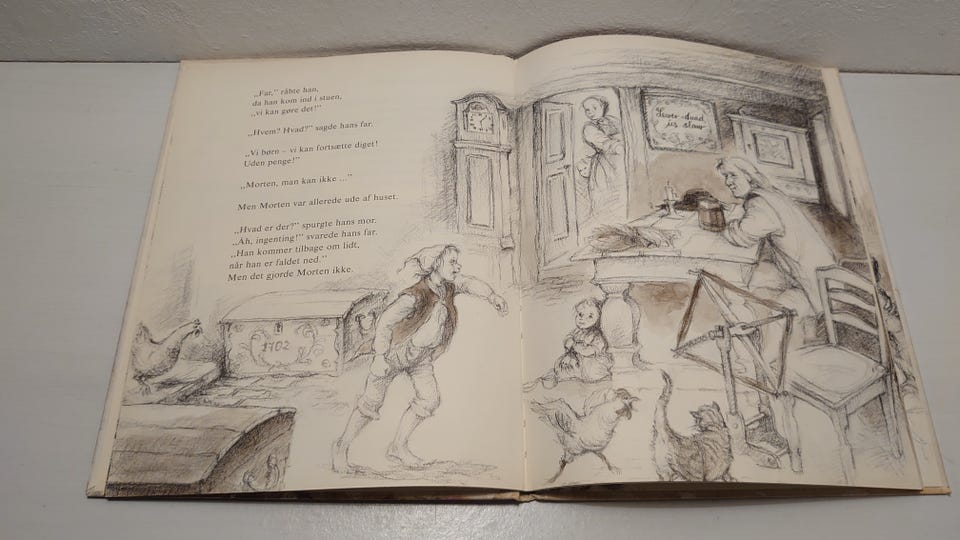 „Far,” råbte han,
da han kom ind i stuen,
„vi kan gøre det!”
„Hvem? Hvad?” sagde hans far.
„Vi børn – vi kan fortsætte diget!
Uden penge!”
„Morten, man kan ikke ...”
Men Morten var allerede ude af huset.
„Hvad er der?” spurgte hans mor.
„Åh, ingenting!” svarede hans far.
„Han kommer tilbage om lidt,
når han er faldet ned.”
Men det gjorde Morten ikke.
1702